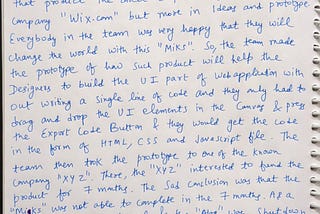 that produce the
company "Wix.com" but more in Ideas and prototype
Everybody in the team was very happy that they will
change the world with this "Miks". So, the team made
the prototype of how such product will help the
Designers to build the UI part of web application with
out writing a single line of code and they only had to
drag and drop the UI elements in the Canvas & press
the Export Code Button & they would get the code
in the form of HTML, CSS and Javascript file. The
team then took the prototype to one of the known
Company "XYZ". There, the "XYZ" interested to fund the
product for 7 months. The Sad Conclusion was that the
"Miks" was not able to complete in the 7 months. As a